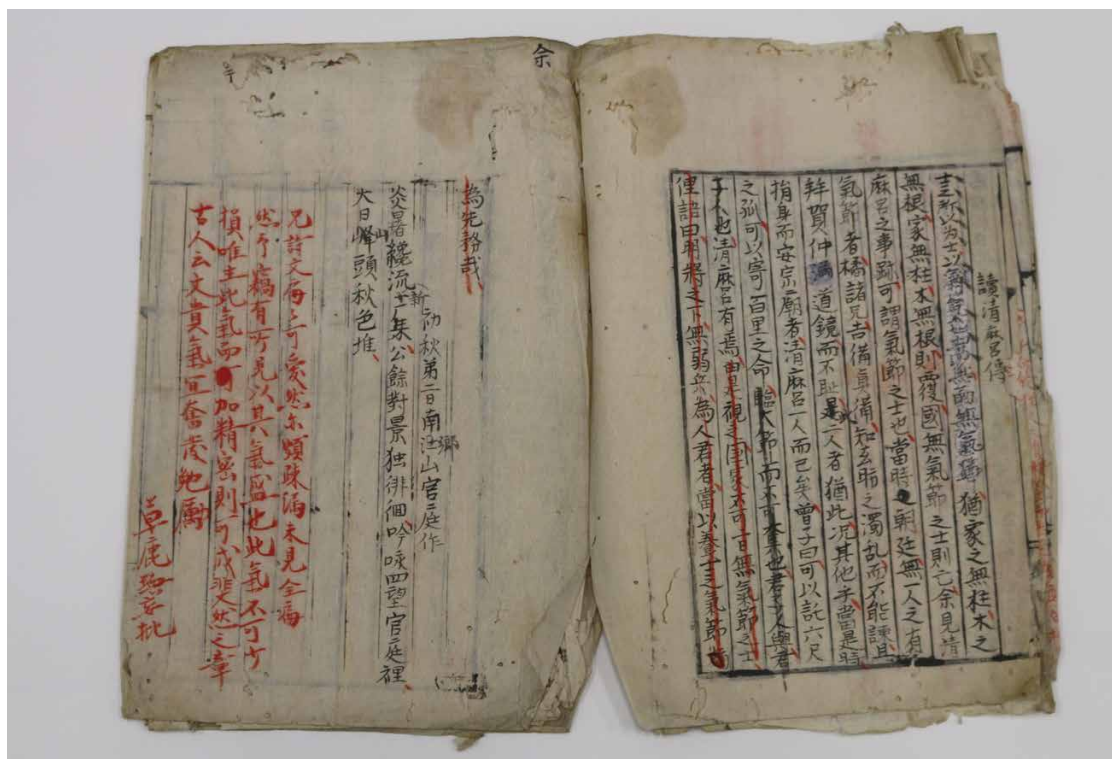 讀清麻呂傳
士所以為士以有氣節也国無氣節猶家之無柱木之
無根家無柱木無根則覆國無氣節之士則亡余見清
麻呂之事跡可謂氣節之士也當時朝廷無人之有
氣節者橘諸兄吉備真備知玄昉之濁乱而不能諫且
拜賀仲滿道鏡而不耻是二人者猶此況其他乎當是時
捐身而安宗廟者清麻呂一人而已矣曾子曰可以託六尺
之孤可以寄百里之命臨大節而不可奪也君子人與君
子人也清麻呂有焉由是視之国家不可一日無氣節之士
俚諺曰明將之下無弱兵為人君者當以養士之氣節
余
為先務哉
初秋第二日南江山官庭作
新
鄉
炎暑纔流十一集公餘對景独徘徊吟咏四望官庭裡
火日峰頭秋色堆
山
兄詩文篇々可愛然亦頗疎漏未見全篇
然予窃有所見以其氣盛也此氣不可少
損唯主此氣而加精密則可成斐然之章
古人云文貴氣宜奮發勉勵
草鹿 批